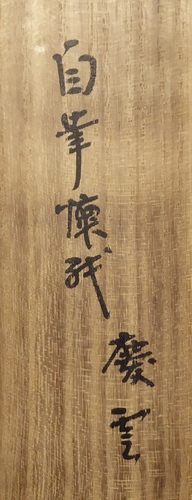 自筆懐紙
慶雲